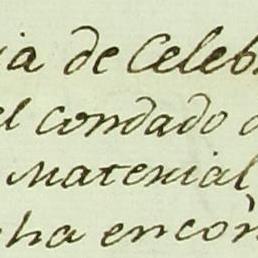 ia de Celeb
el condado d
Material
cha encon